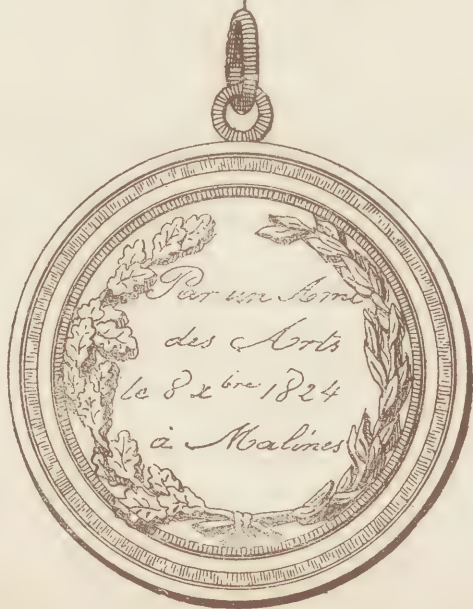 Par un Ami
des Arts
le 8 xbre 1824
à Malines